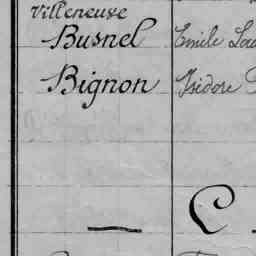 Villeneuve
Busnel Emile
Bignon Isidore
C